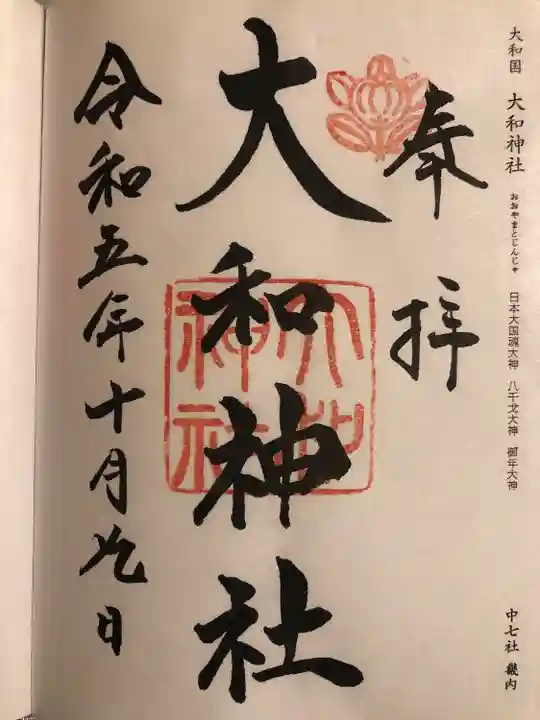 大和国 大和神社 おおやまとじんじゃ 日本大国魂大神 八千戈大神 御年大神 中七社 畿内
奉拝
大和神社
大和神社
令和五年十月九日